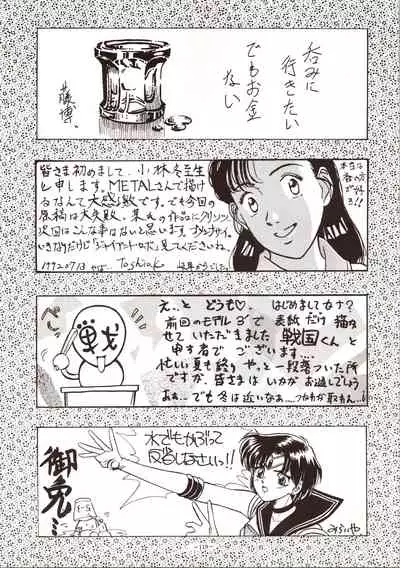 呑みに
行きたい
でもお金
ない
藤博。
皆さま初めまして、小林冬至生
と申します。METALさんで描け
るなんて大感激です。でも今回の
原稿は大失敗。
次回はこんな事はないと思います。ゴメンナサイ。
いきなりだけど「ジャイアント・ロボ」見てくださいね。
1992 07 13
Toshiaki
べ〜ん
戦
え、、と どうも♡ はじめましてかナ?
前回のモデルSで表紙だけ描か
せていただきました 戦国くんと
申す者でございます…
忙しい夏も終りやっと一段落ついた所
ですが、皆さまはいかがお過しでしょう
あぁ…でも冬は近いなぁ…
水でもかぶって
反省しなさいっ!!
御免…
みぶにや